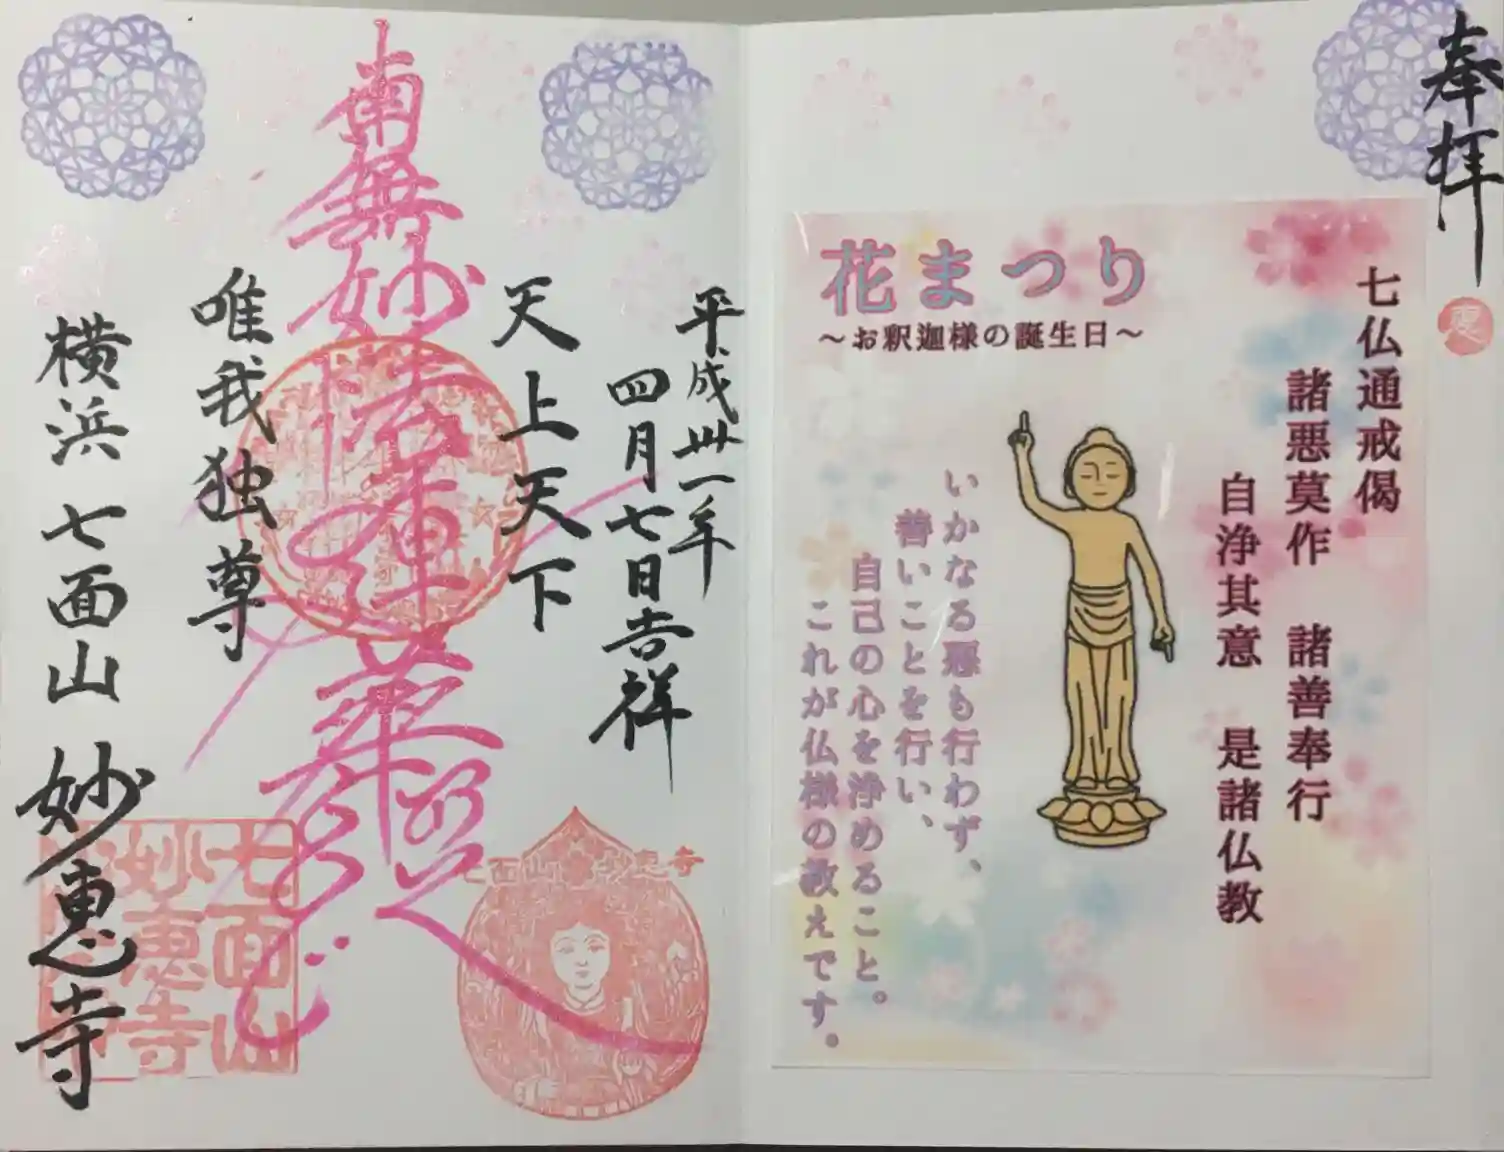 奉拝
花まつり
～お釈迦様の誕生日～
七仏通戒偈
諸悪莫作 諸善奉行
自浄其意 是諸仏教
いかなる悪も行わず、
善いことを行い、
自己の心を浄めること。
これが仏様の教えです。
平成卅一年
四月七日吉祥
天上天下
南無妙法蓮華経
唯我独尊
横浜 七面山 妙恵寺
七面山 妙恵寺
七面山
妙恵寺